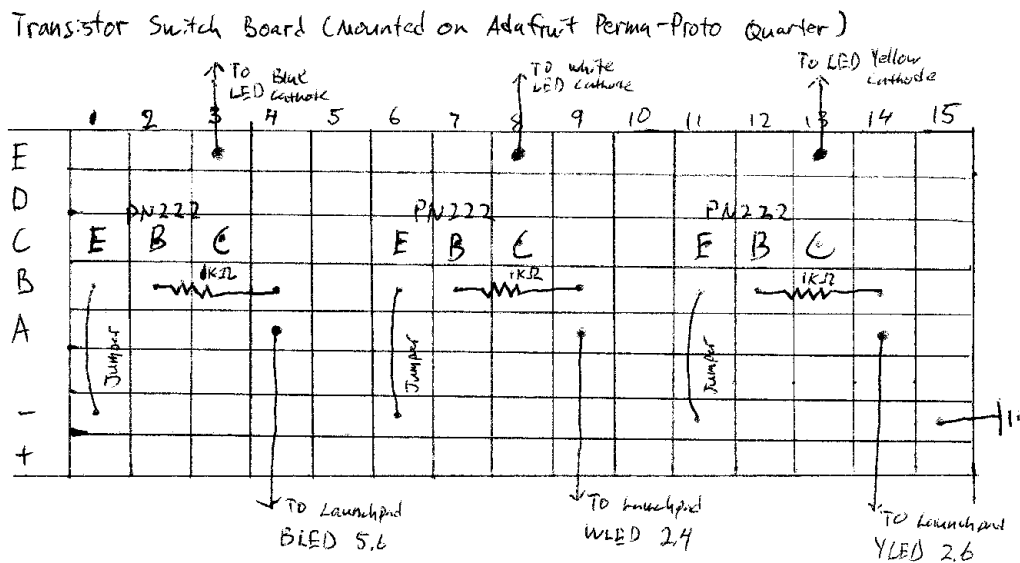 Transistor Switch Board (mounted on Adafruit Perma-Proto Quarter)
To Blue LED Cathode
To white LED Cathode
To LED Yellow Cathode
1 2 3 4 5 6 7 8 9 10 11 12 13 14 15
E
D
PN222 PN222 PN222
C E B C E B C E B C
B 1KΩ 1KΩ 1KΩ
A
Jumper Jumper Jumper
-
+
To Launchpad
BLED 5.6
To Launchpad
WLED 2.4
To Launchpad
YLED 2.6